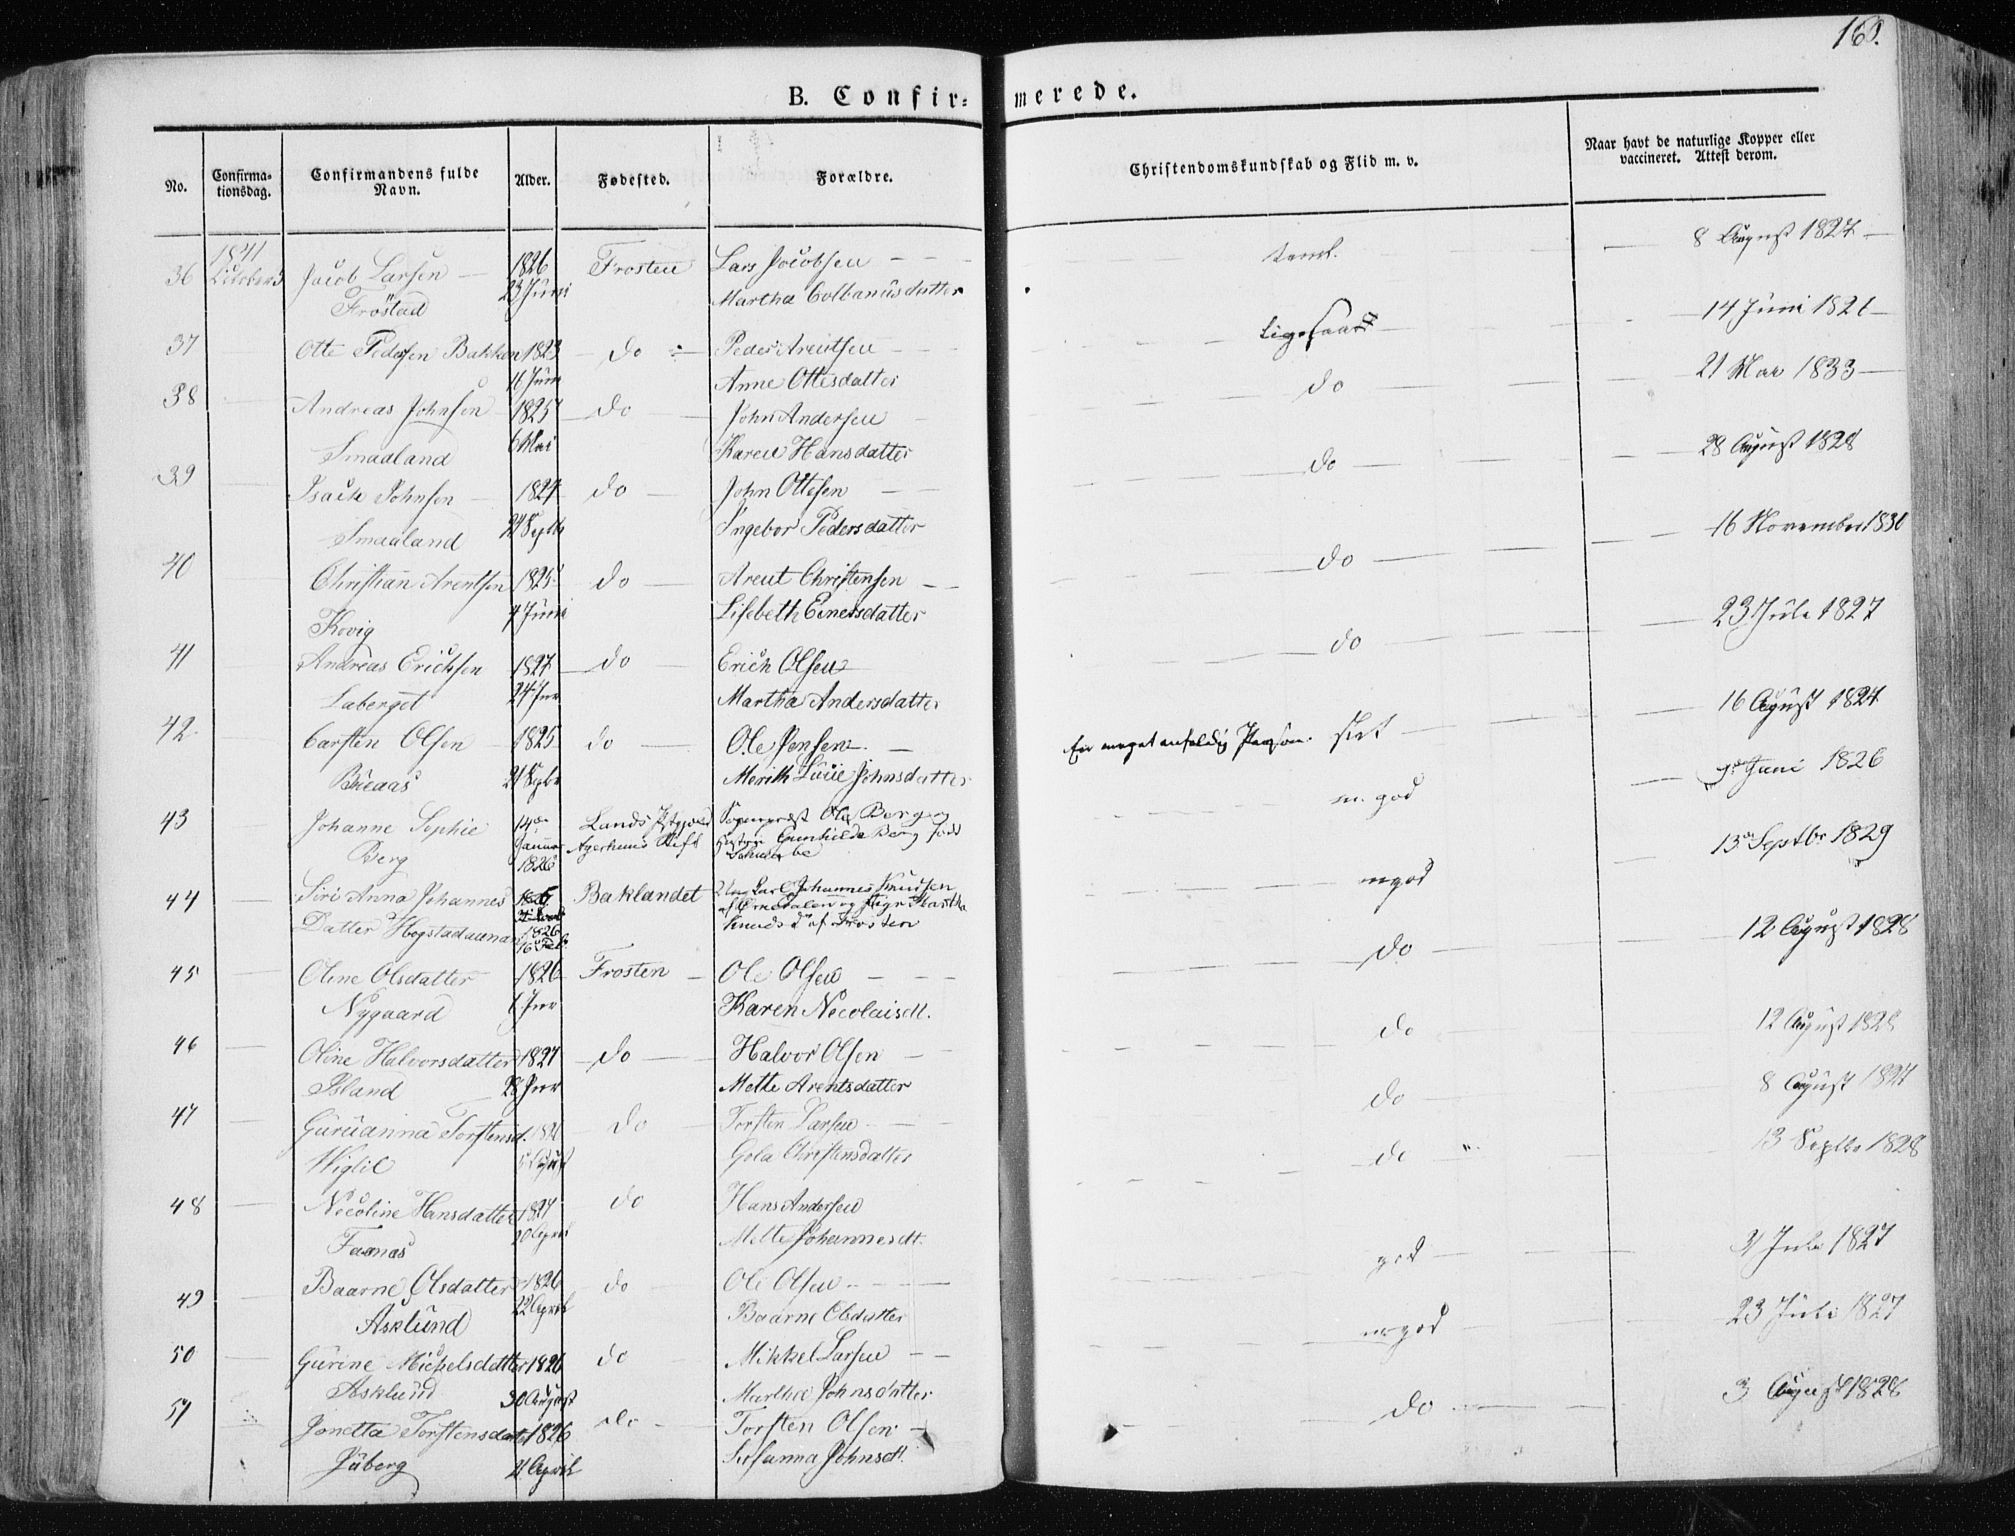 160.
B. Confirmerede.
No.
Confirmationsdag.
Confirmandens fulde Navn.
Alder.
Fødested.
Forældre.
Christendomskundskab og Flid m. v.
Naar havt de naturlige Kopper eller vaccineret. Attest derom.
1841
36 Jacob Larsen 1826 Frosten Lars Jacobsen 8 August 1827
Frøstad 23 Juni Martha Colbanusdatter
37 Otte Pedersen Bakken 1823 do Peder Arentsen Ligesaa 14 Juni 1821
11 Juni Anne Ottesdatter
38 Andreas Johnsen 1825 do John Andersen do 21 Mai 1833
Smaaland 6 Mai Karen Hansdatter
39 Isack Johnsen 1827 do John Ottesen do 28 August 1828
Smaaland Ingebor Pedersdatter
40 Christian Arentsen 1825 do Arent Christensen do 16 November 1830
Kovig 4 Juni Lisebeth Einersdatter
41 Andreas Ericksen 1827 do Erich Olsen do 23 Juli 1827
Laberget 24 Jnr Martha Andersdatter
42 Carsten Olsen 1825 do Ole Jensen En meget enfoldig Person. slet 16 August 1827
21 Septbr Johnsdatter
43 Johanne Sophie 14de Lands Sognepræst Ole Berg og m. god Juni 1826
Berg Januar Agerhuus Stift Gunhilde Berg født
1826
44 Siri Anna Johannes Baklandet Johannes Knudsen mgod 13de Septbr 1829
Datter 1826 af og Pige Martha
16 Feb. Knudsd af Frosten
45 Oline Olsdatter 1826 Frosten Ole Olsen do 12 August 1828
Nygaard 1 Jnr Karen Nicolaisdt.
46 Oline Halvorsdatter 1827 do Halvor Olsen do 12 August 1828
Island 28 Jnr Mette Arentsdatter
47 Guruanna Torstensd. do Torsten Larsen do 8 August 1827
Viglil Gola Christensdatter
48 Nicoline Hansdatter 1827 do Hans Andersen do 13 Septbr 1828
Faanas April Mette Johannesdt.
49 Baarne Olsdatter 1826 do Ole Olsen god 31 Juli 1827
Asklund 22 April Baarne Olsdatter
50 Gurine Mickelsdatter 1826 do Mikkel Larsen mgod 23 Juli 1827
Asklund 30 August Martha Johnsdatter
51 Jonetta Torstensdatter 1826 do Torsten Olsen do 3 August 1828
Juberg 21 April Susanna Johnsdt.